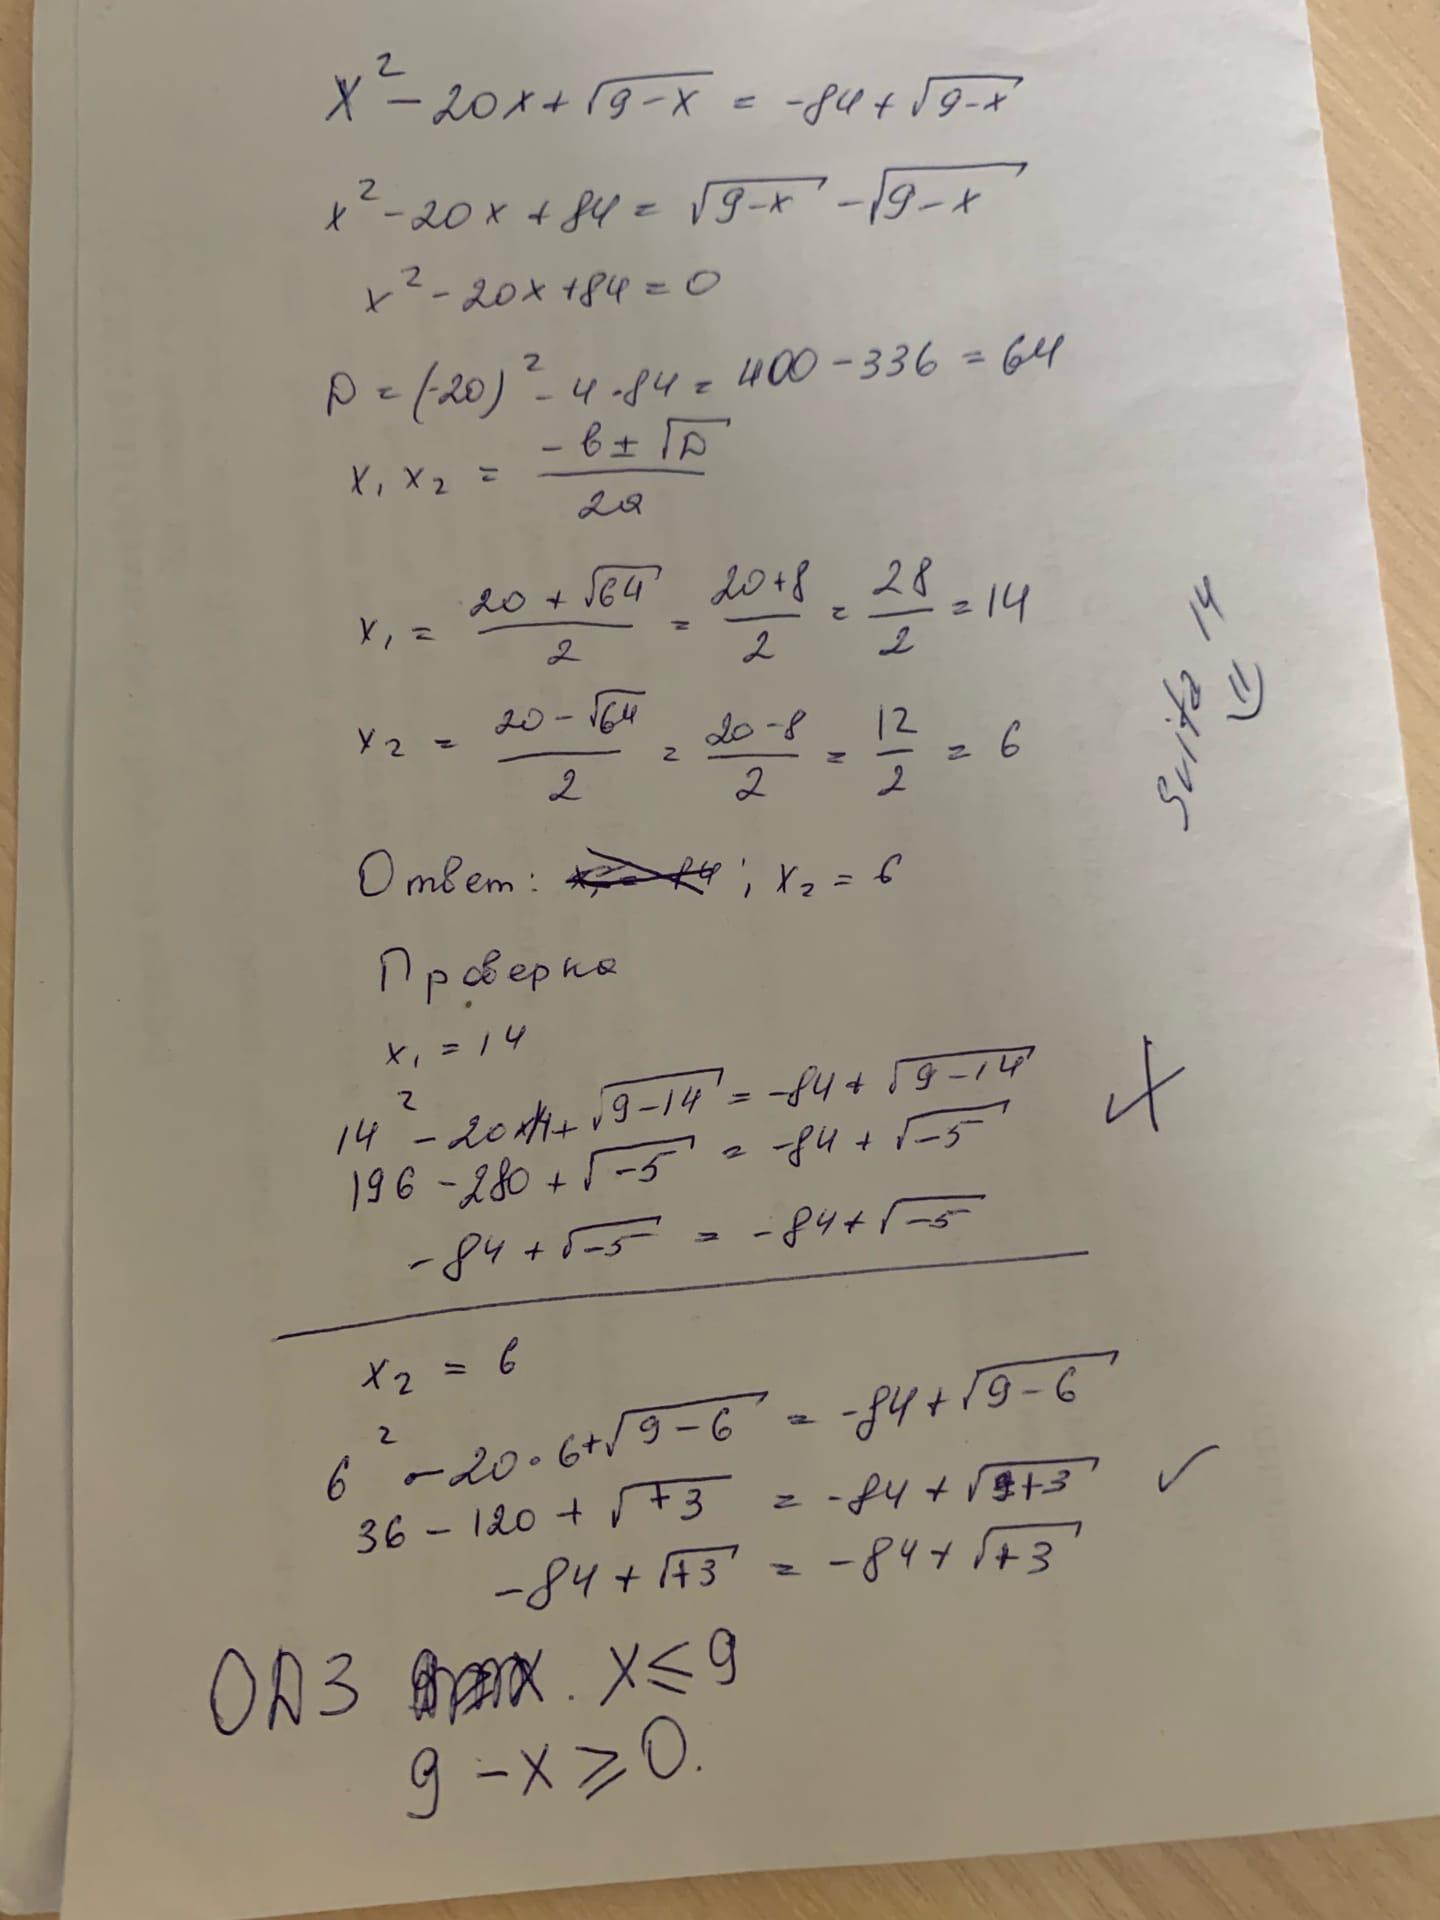 x² - 20x + √9-x = -84 + √9-x
x² - 20x + 84 = √9-x - √9-x
x² - 20x + 84 = 0
D = (-20)² - 4 · 84 = 400 - 336 = 64
x₁ x₂ = -b ± √D / 2a
x₁ = 20 + √64 / 2 = 20+8 / 2 = 28 / 2 = 14
x₂ = 20 - √64 / 2 = 20-8 / 2 = 12 / 2 = 6
Suita 14
Ответ: ; x₂ = 6
Проверка
x₁ = 14
14² - 20x14 + √9-14 = -84 + √9-14
196 - 280 + √-5 = -84 + √-5
-84 + √-5 = -84 + √-5
x₂ = 6
6² - 20 · 6 + √9-6 = -84 + √9-6
36 - 120 + √+3 = -84 + √+3
-84 + √+3 = -84 + √+3
ОДЗ x ≤ 9
9 - x ≥ 0.